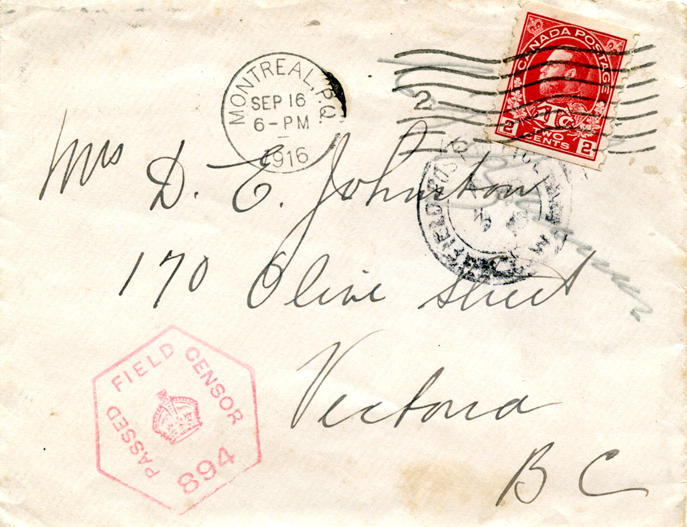 MONTREAL, P.Q.
SEP 16
6-PM
1916
2
CANADA POSTAGE
1Tc
2 TWO CENTS 2
Mrs D. E. Johnston
FIELD POST
170 Olive Street
Victoria
B C
PASSED FIELD CENSOR
894